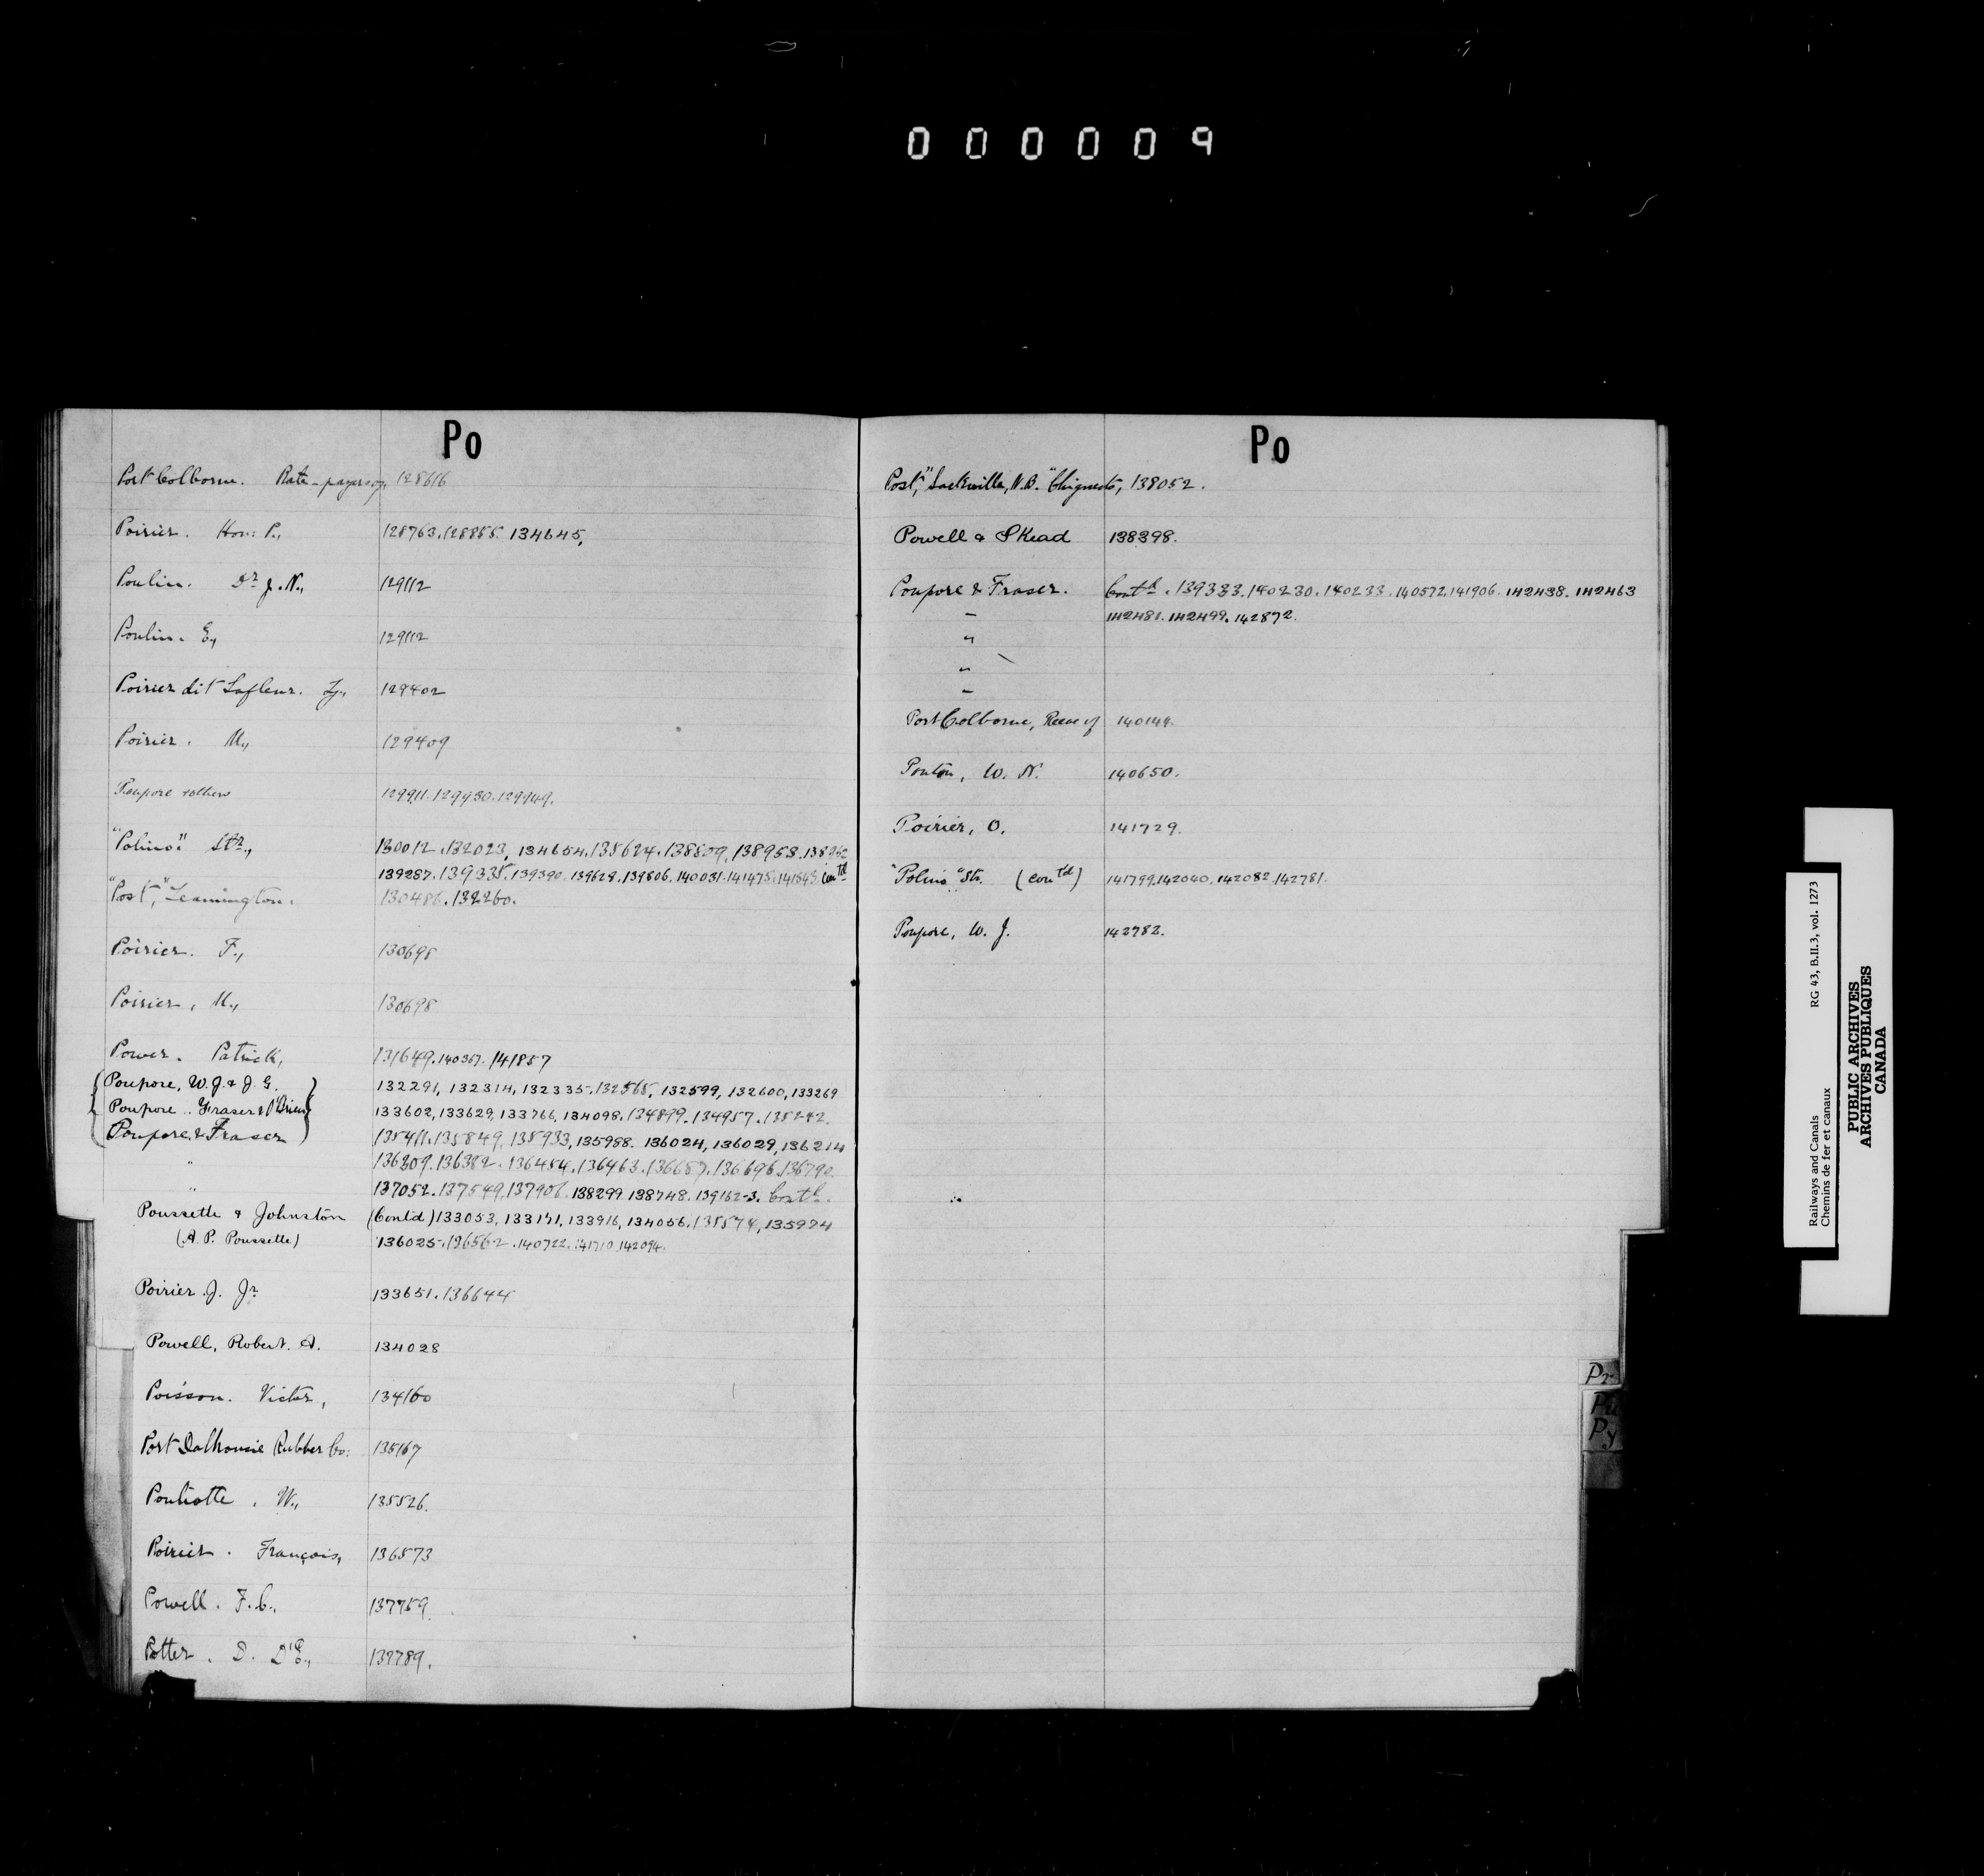 000009
Po
Port Colborne. Rate-payers of, 128616
Poirier. Hon: P., 128763. 128855. 134645,
Poulin. Dr. J. N., 129112
Poulin. E., 129112
Poirier dit Lafleur. Z., 129402
Poirier. M., 129409
Poupore 129911. 129930. 129949.
"Polino" Str., 130012. 132023, 134654. 135624. 138809. 138958. 138982
139287. 139335. 139390. 139628. 139806. 140031. 141475. 141543. Contd
"Post," Leamington. 130486. 132260.
Poirier. F., 130698
Poirier, M., 130698
Power. Patrick, 131649. 140367. 141857
Poupore, W. J. & J. G. 132291, 132314, 132335. 132565, 132599, 132600, 133269
Poupore .. Fraser & O'Brien 133602, 133629, 133766, 134098. 134899. 134957. 135242.
Poupore & Fraser 135411. 135849. 135933, 135988. 136024, 136029, 136214
" 136309. 136382. 136454. 136463. 136687. 136696. 136790.
" 137052. 137549. 137906. 138299. 138748. 139162-3. Contd.
Poussette & Johnston (Contd) 133053, 133141, 133916, 134056. 135574, 135974
(A. P. Poussette) 136025. 136562. 140722. 141710. 142094.
Poirier J. Jr. 133651. 136644
Powell, Robert. A. 134028
Poisson. Victor, 134160
Port Dalhousie Rubber Co: 135167
Pouliotte. W., 135526.
Poirier. François, 136573
Powell. F. C., 137759.
Potter. D. D'E., 137789.
Po
Post," Sackville, N.B. "Chignecto, 138052.
Powell & Skead 138398.
Poupore & Fraser. Contd. 139333. 140230. 140233. 140572. 141906. 142438. 142463
" 142481. 142499. 142872.
"
"
"
Port Colborne, Reeve of 140149.
Ponton, W. N. 140650.
Poirier, O. 141729.
"Polino" Str. (contd) 141799. 142040. 142082. 142781.
Poupore, W. J. 142782.
Pr
Pu
Py
Railways and Canals RG 43, B.II.3, vol. 1273
Chemins de fer et canaux
PUBLIC ARCHIVES
ARCHIVES PUBLIQUES
CANADA